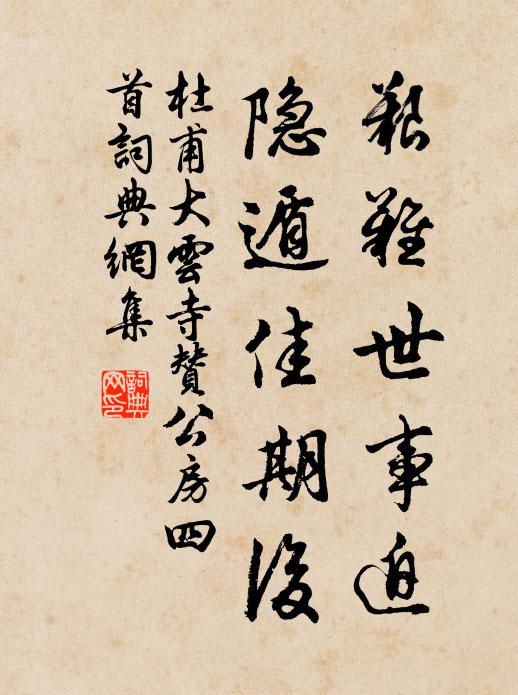 艱難世事迫
隐遁佳期後
杜甫大雲寺贊公房四
首詞典網集
詞典
网印